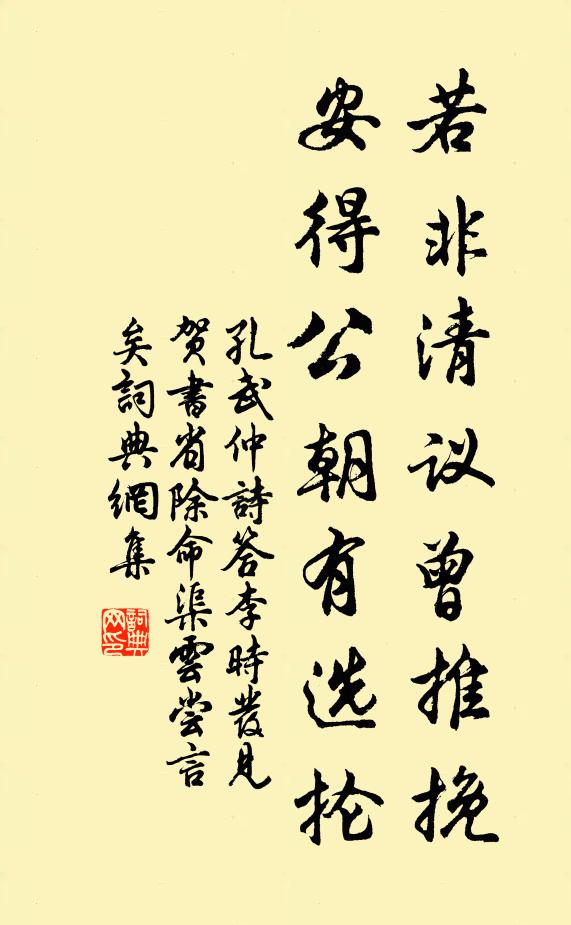 若非清议曾推挽
安得公朝有选抡
孔武仲詩答李時發見
贺書省除命渠雲尝言
矣詞典網集
詞典网印